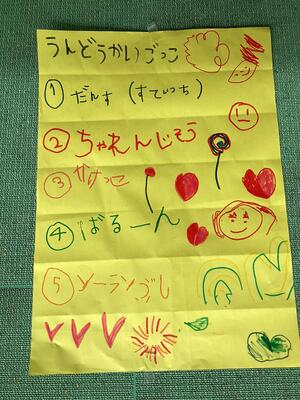 うんどうかいごっこ
① だんす (すてぃっち)
② ちゃれんじそう
③ かけっこ
④ ばるーん
⑤ ソーランぶし